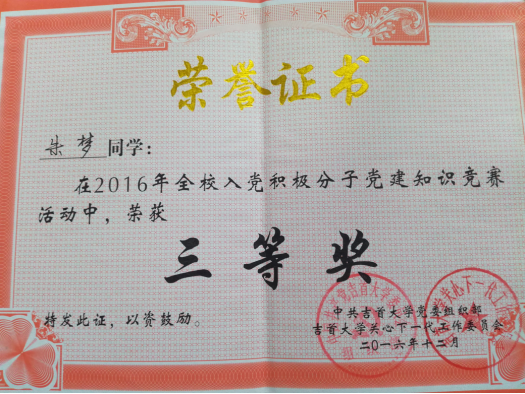 荣誉证书
朱梦 同学：
在2016年全校入党积极分子党建知识竞赛
活动中，荣获
三等奖
特发此证，以资鼓励。
中共吉首大学党委组织部
吉首大学关心下一代工作委员会
二〇一六年十二月